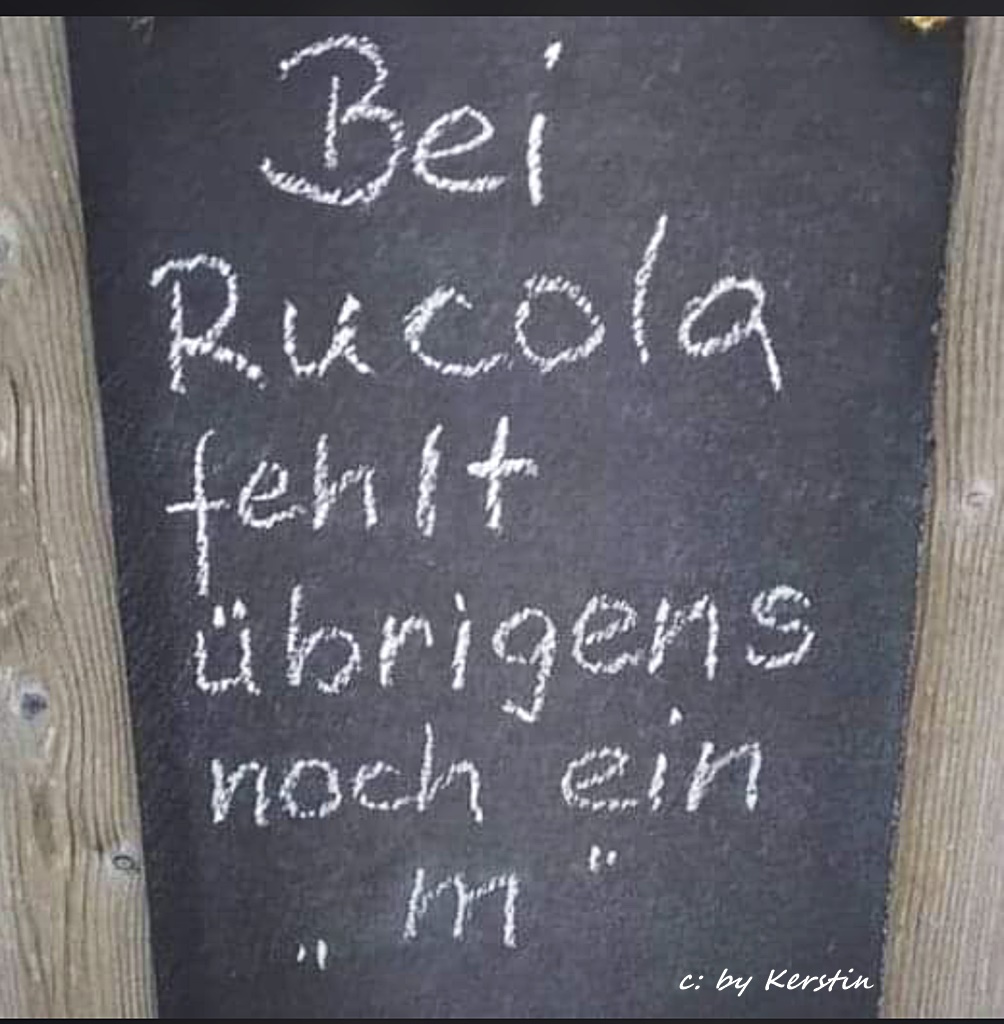 Bei
Rucola
fehlt
übrigens
noch ein
„ m "
c: by Kerstin